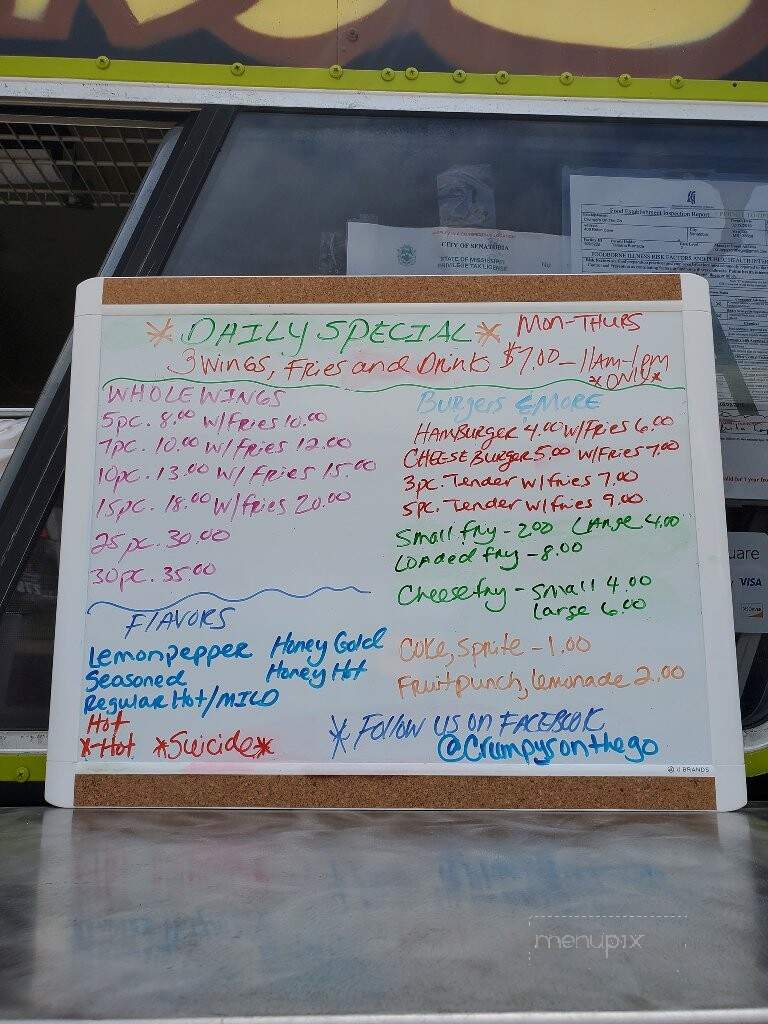 CITY OF SENATOBIA
STATE OF MISSISSIPPI
PRIVILEGE TAX LICENSE
Food Establishment Inspection Report
*DAILY SPECIAL* MON-THURS
3 Wings, Fries and Drink $7.00 - 11AM-1pm
*ONLY*
WHOLE WINGS
5pc. 8.00 w/Fries 10.00
7pc. 10.00 w/Fries 12.00
10pc. 13.00 w/ Fries 15.00
15pc. 18.00 w/Fries 20.00
25pc. 30.00
30pc. 35.00
FLAVORS
Lemonpepper Honey Gold
Seasoned Honey Hot
Regular Hot/MILD
Hot
X-Hot *Suicide*
Burgers & MORE
HAMBURGER 4.00 w/FRIES 6.00
CHEESE BURGER 5.00 w/FRIES 7.00
3pc. Tender w/fries 7.00
5pc. Tender w/fries 9.00
Small fry - 200 LARGE 4.00
LOADED fry - 8.00
Cheese fry - small 4.00
large 6.00
Coke, Sprite - 1.00
Fruit punch, lemonade 2.00
* Follow us on FACEBOOK
@Crumpysonthego
U BRANDS
uare
VISA
menupix